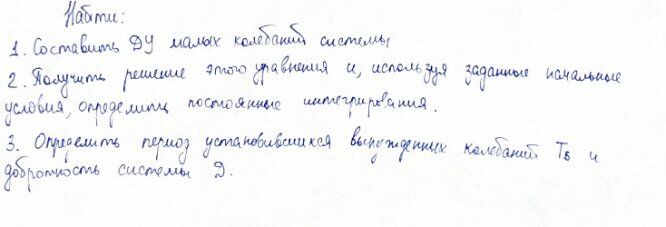 Найти:
1. Составить ДУ малых колебаний системы
2. Получить решение этого уравнения и, используя заданные начальные
условия, определить постоянные интегрирования.
3. Определить период установившихся вынужденных колебаний Тв и
добротность системы Д.